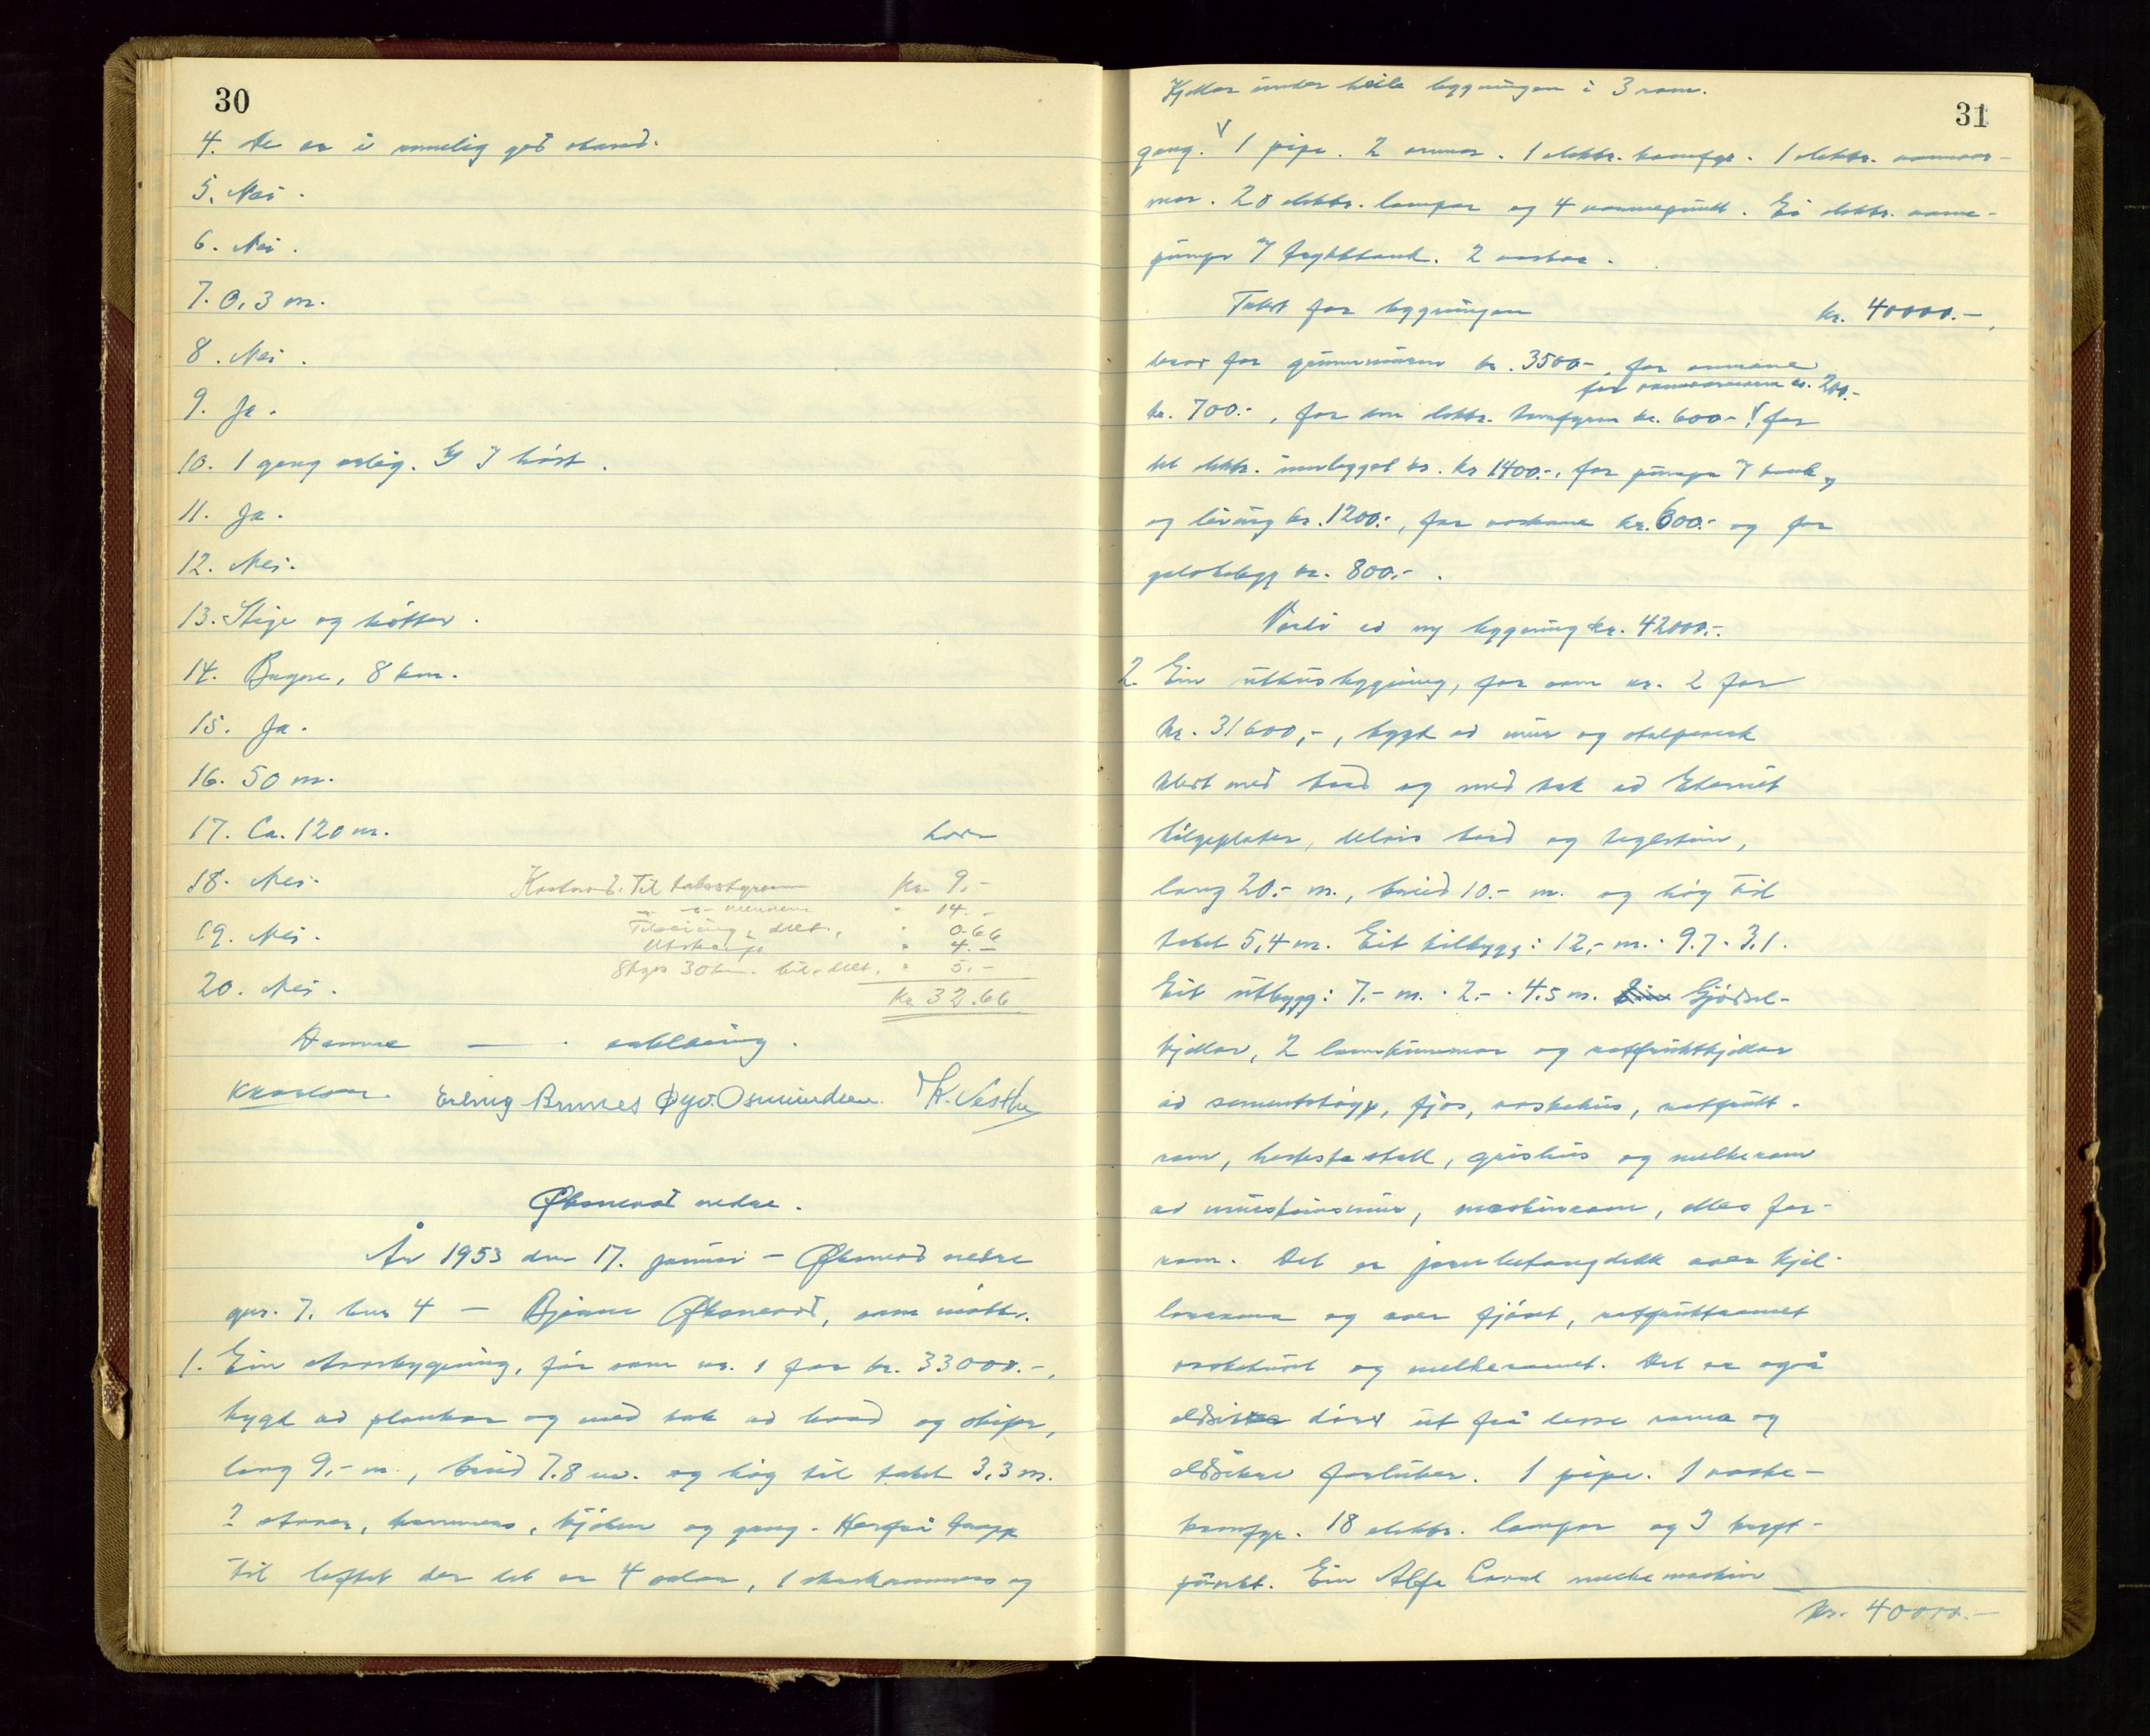 30
4. De er i rimelig god stand.
5. Nei.
6. Nei.
7. 0,3 m.
8. Nei.
9. Ja.
10. 1 gang årleg. I høst.
11. Ja.
12. Nei.
13. Stige og bøtter.
14. Bryne, 8 km.
15. Ja.
16. 50 m.
17. Ca. 120 m.
18. Nei.
19. Nei.
20. Nei.
Kostnad: Til takststyrem kr. 9,-
" 14.-
" 0.66
Utskrift " 4.-
Skyss 30 km. bil " 5,-
Kr 32.66
Samme — erklæring.
Erling Brunes Øyv. Osmundsen.
Øksnevad nedre.
År 1953 den 17. januar – Øksnevad nedre
gnr. 7. bnr 4 — Bjarne Øksnevad, som møtte.
1. Ein stovebygning, før som nr. 1 for kr. 33000.-,
bygt av plankar og med tak av bord og skifer,
lang 9,- m., breid 7.8 m. og høg til taket 3,3 m.
2 stover, kammers, kjøken og gang. Herfrå trapp
til loftet der det er 4 soler, 1 skeskammers og
31
Kjellar under heile bygningen i 3 rom.
gang. V 1 pipe. 2 omnar. 1 elektr. komfyr. 1 elektr. vannvar-
mar. 20 elektr. lampar og 4 varmepunkt. Ei elektr. vann-
pumpe og trykktank. 2 vaskar.
Takst for bygningen kr. 40000.-,
herav for grunnmuren kr. 3500.-, for omnane
for vannvarmaren kr. 200.-
kr. 700.-, for den elektr. komfyren kr. 600.- V for
det elektr. innlegget kr. 1400.-, for pumpe og tank
og leiding kr. 1200.-, for vaskane kr. 600.- og for
golvbelegg kr. 800.-.
Verdi av ny bygning kr. 42000.-.
2. Ein uthusbygning, før som nr. 2 for
kr. 31600,-, bygt av mur og stolpeverk
kledt med bord og med tak av Eternit
bølgeplater, delvis bord og teglstein,
lang 20.- m., breid 10.- m. og høg til
taket 5,4 m. Eit tilbygg: 12,- m. · 9.7 · 3.1.
Eit utbygg: 7,- m. · 2,- · 4.5 m. Gjødsel-
kjellar, 2 landkummar og rotfruktkjellar
av sementstøyp, fjøs, vaskehus, rotfrukt-
rom, hestestall, grishus og melkerom
av mursteinsmur, maskinrom, elles for-
rom. Det er jernbetongdekk over kjel-
larane og over fjøset, rotfruktrommet
vaskehuset og melkerommet. Det er også
eldsikre dører ut frå desse romma og
eldsikre forluker. 1 pipe. 1 vaske-
komfyr. 18 elektr. lampar og 3 kraft-
punkt. Ein Alfa Laval melkemaskin
kr. 40000.-